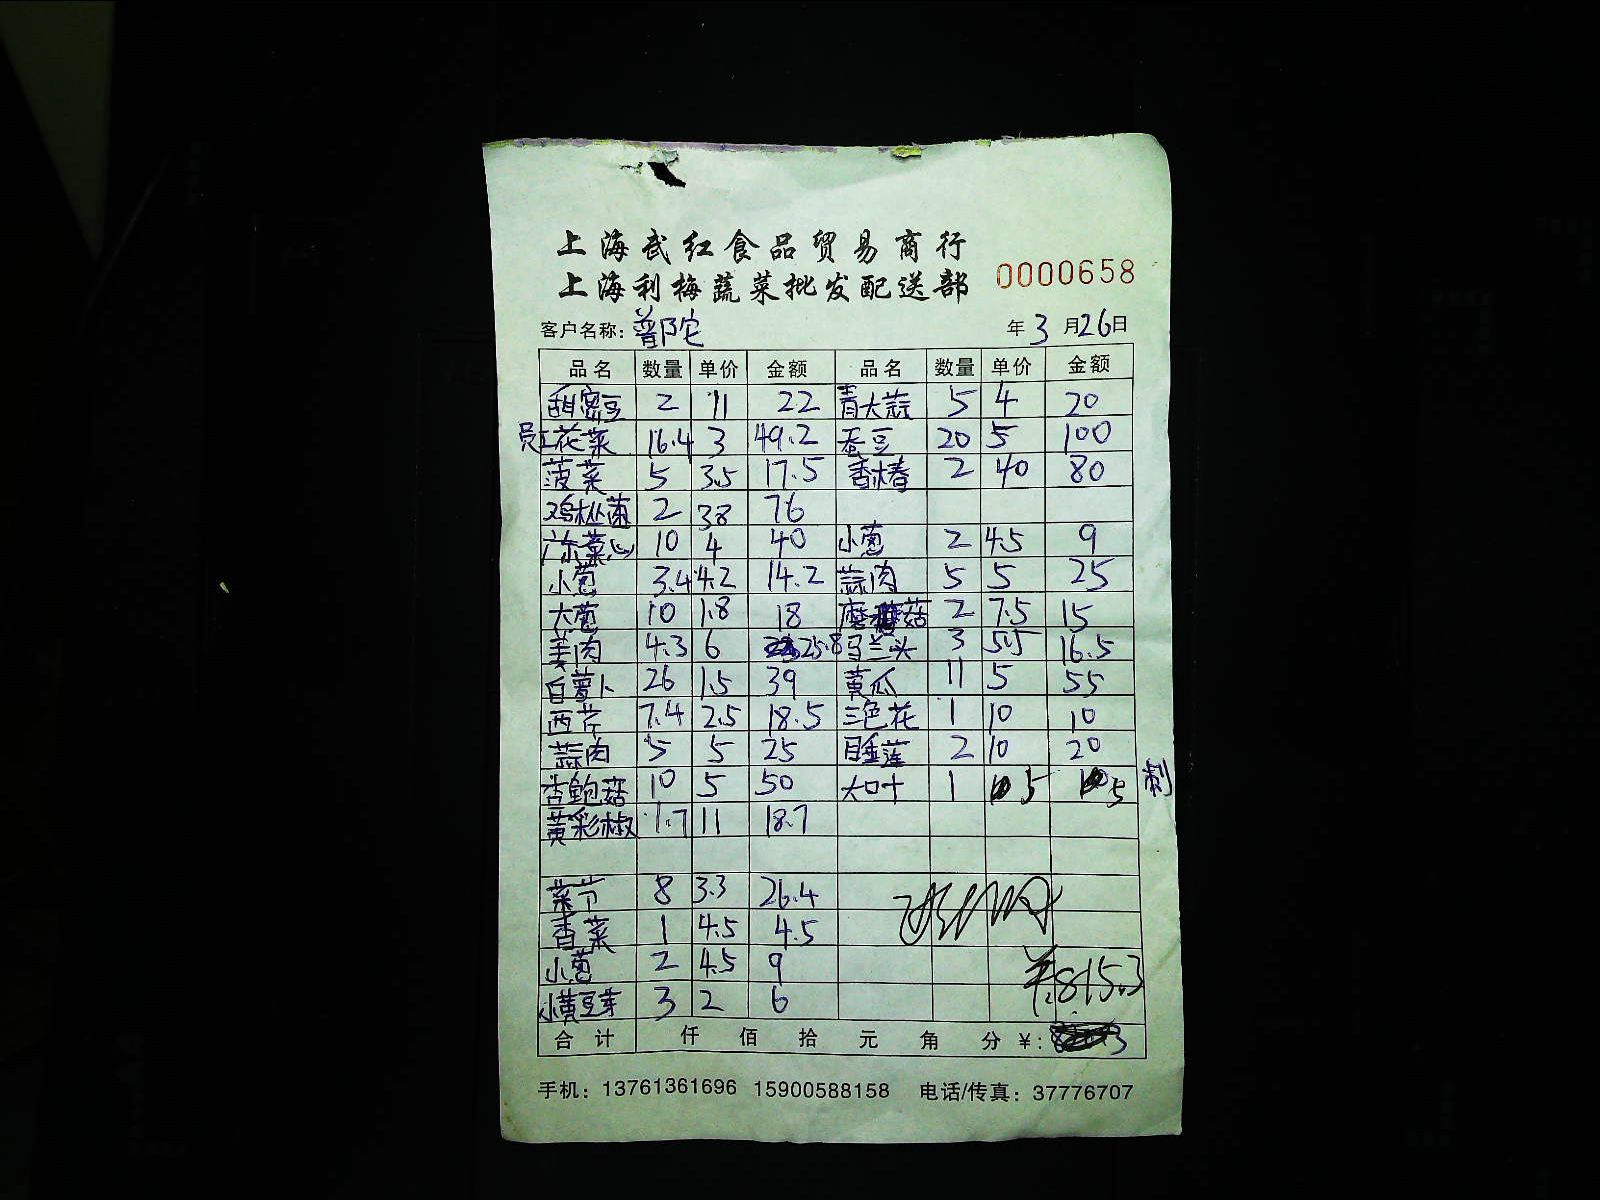 上海武红食品贸易商行
上海利梅蔬菜批发配送部 0000658
客户名称: 普陀 年 3 月 26 日
品名 数量 单价 金额 品名 数量 单价 金额
甜密豆 2 11 22 青大蒜 5 4 20
员工花菜 16.4 3 49.2 蚕豆 20 5 100
菠菜 5 3.5 17.5 香椿 2 40 80
鸡枞菌 2 38 76
广东菜心 10 4 40 小葱 2 4.5 9
小葱 3.4 4.2 14.2 蒜肉 5 5 25
大葱 10 1.8 18 蘑菇 2 7.5 15
姜肉 4.3 6 25.8 马兰头 3 5.5 16.5
白萝卜 26 1.5 39 黄瓜 11 5 55
西芹 7.4 2.5 18.5 三色花 1 10 10
蒜肉 5 5 25 睡莲 2 10 20
杏鲍菇 10 5 50 大叶 1 5 5 刺
黄彩椒 1.7 11 18.7
菜节 8 3.3 26.4
香菜 1 4.5 4.5
小葱 2 4.5 9 ¥:815.3
小黄豆芽 3 2 6
合计 仟 佰 拾 元 角 分 ¥:
手机: 13761361696 15900588158 电话/传真: 37776707